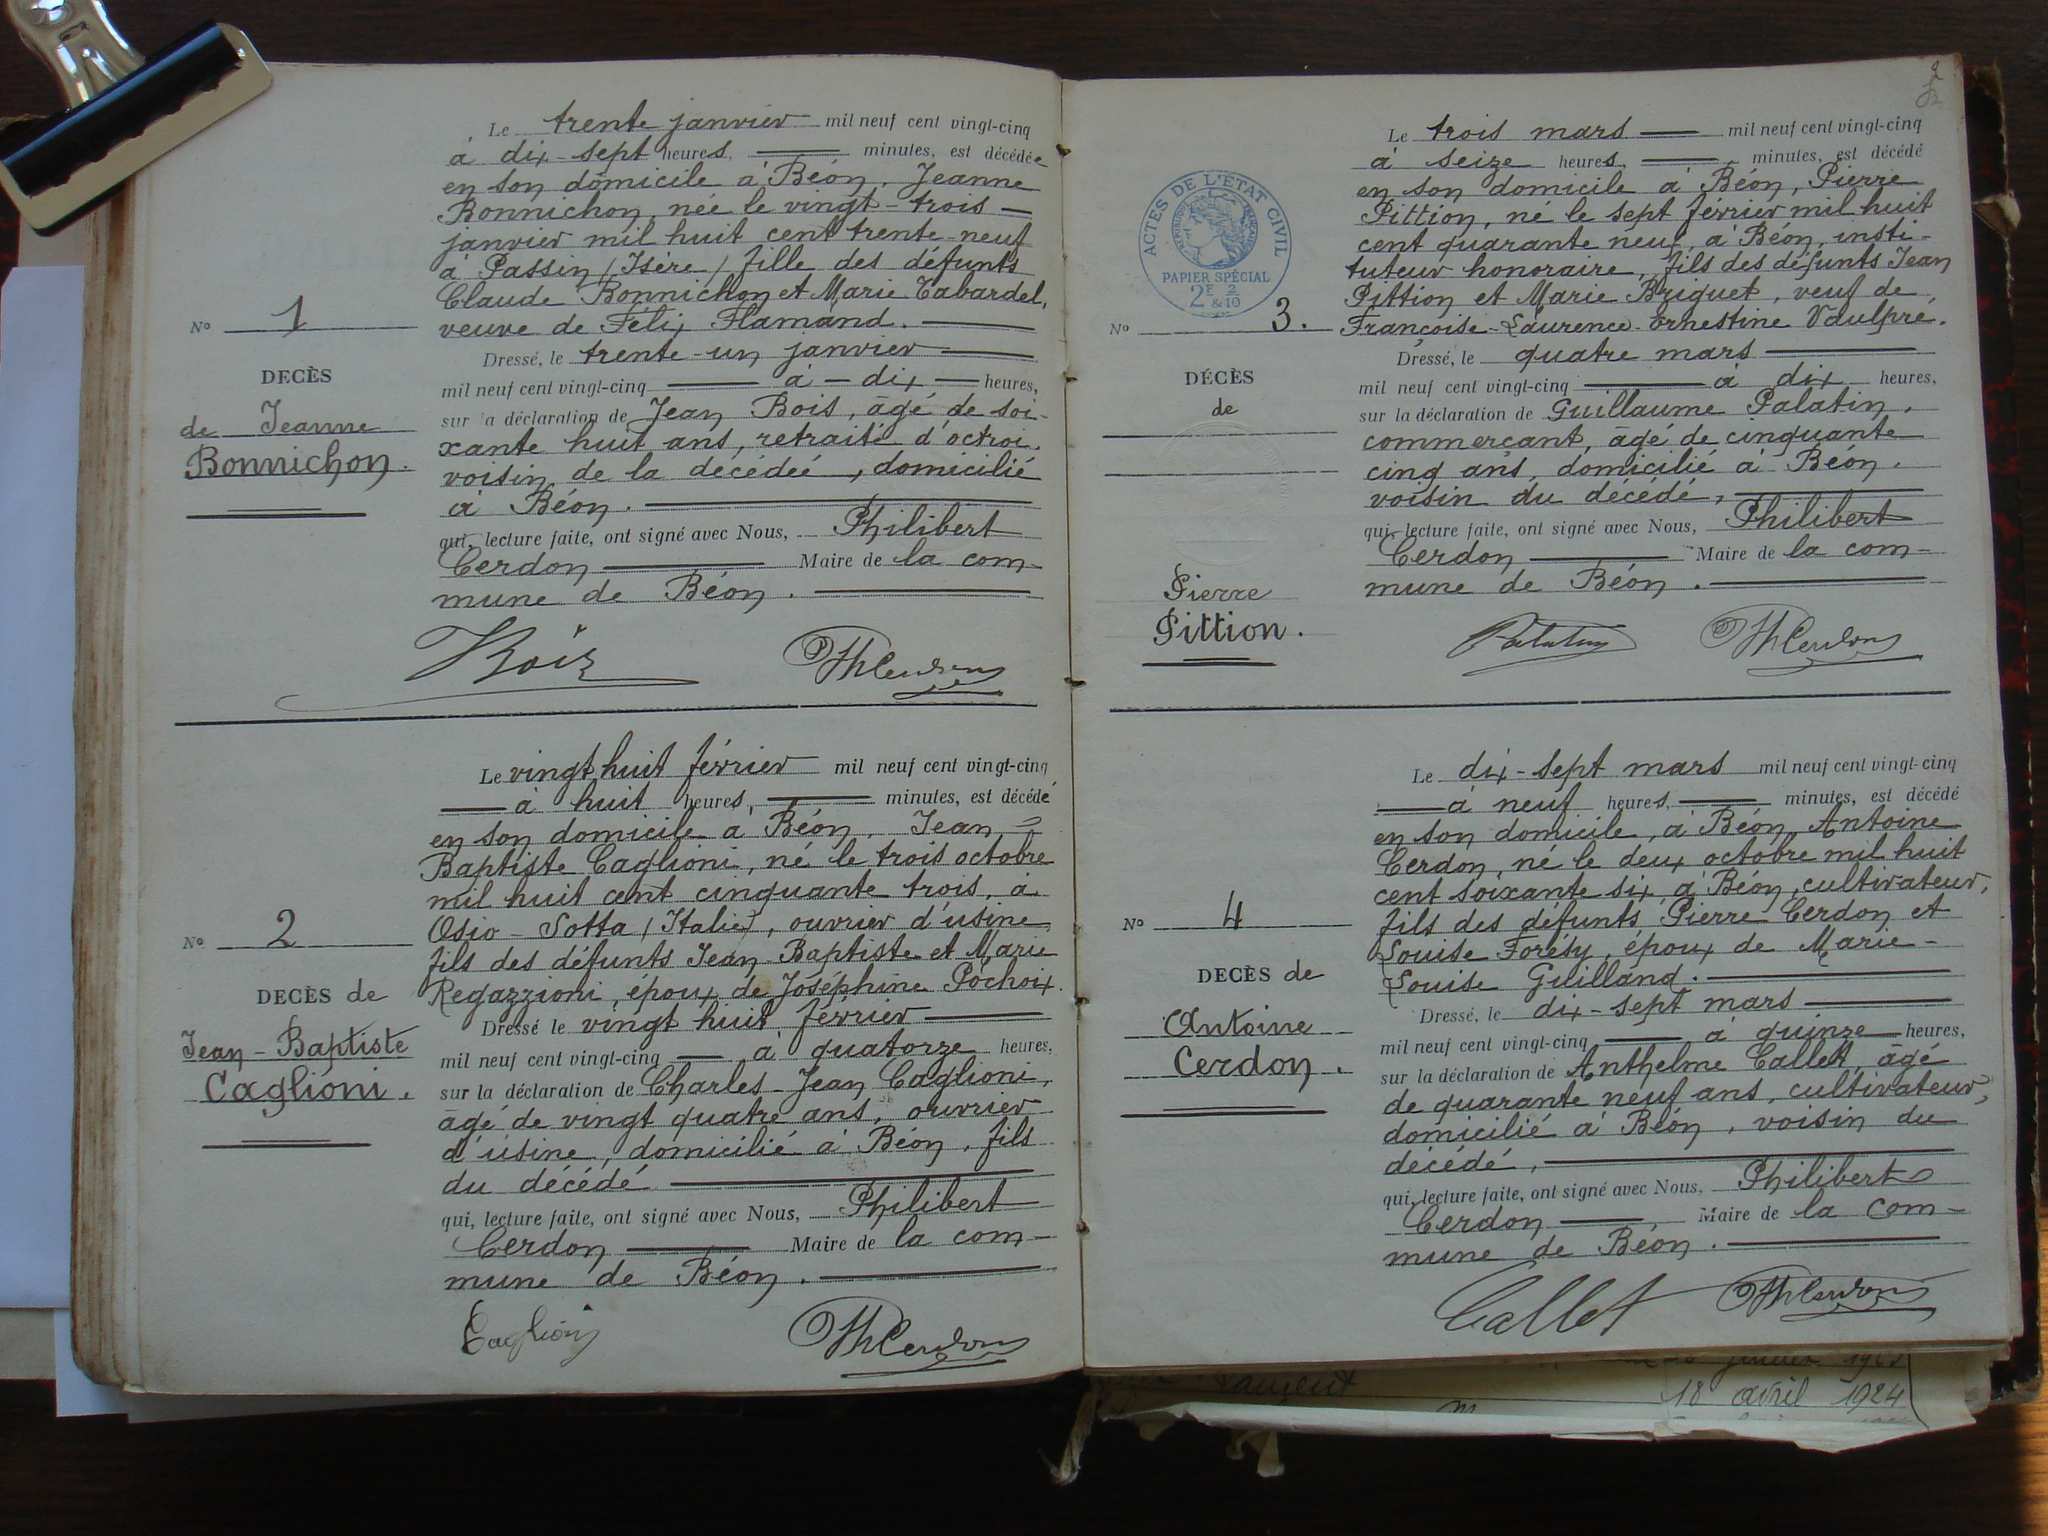 Le trente janvier mil neuf cent vingt-cinq
à dix-sept heures, minutes, est décédée
en son domicile à Béon, Jeanne
Bonnichon, née le vingt-trois
janvier mil huit cent trente-neuf
à Passin (Isère) fille des défunts
Claude Bonnichon et Marie Tabardel,
veuve de Félix Flamand.
No 1
DECÈS
de Jeanne
Bonnichon.
Dressé, le trente-un janvier
mil neuf cent vingt-cinq à dix heures,
sur la déclaration de Jean Bois, âgé de soi-
xante huit ans, retraité d'octroi,
voisin de la décédée, domicilié
à Béon.
qui, lecture faite, ont signé avec Nous, Philibert
Cerdon Maire de la com-
mune de Béon.
JBois
PhCerdon
Le vingt huit février mil neuf cent vingt-cinq
à huit heures, minutes, est décédé
en son domicile à Béon, Jean
Baptiste Caglioni, né le trois octobre
mil huit cent cinquante trois, à
Osio-Sotta (Italie), ouvrier d'usine,
fils des défunts Jean-Baptiste et Marie
Regazzioni, époux de Joséphine Pochoix.
No 2
DECÈS de
Jean-Baptiste
Caglioni.
Dressé le vingt huit février
mil neuf cent vingt-cinq à quatorze heures,
sur la déclaration de Charles-Jean Caglioni,
âgé de vingt quatre ans, ouvrier
d'usine, domicilié à Béon, fils
du décédé
qui, lecture faite, ont signé avec Nous, Philibert
Cerdon Maire de la com-
mune de Béon.
Caglioni
PhCerdon
2
ACTES DE L'ETAT CIVIL
RÉPUBLIQUE FRANÇAISE
PAPIER SPÉCIAL
2E 2/10
&
Le trois mars mil neuf cent vingt-cinq
à seize heures, minutes, est décédé
en son domicile à Béon, Pierre
Pittion, né le sept février mil huit
cent quarante neuf, à Béon, insti-
tuteur honoraire, fils des défunts Jean
Pittion et Marie Briquet, veuf de
Françoise-Laurence-Ernestine Vaulpré.
No 3.
DÉCÈS
de
Pierre
Pittion.
Dressé, le quatre mars
mil neuf cent vingt-cinq à dix heures,
sur la déclaration de Guillaume Palatin,
commerçant, âgé de cinquante
cinq ans, domicilié à Béon,
voisin du décédé,
qui, lecture faite, ont signé avec Nous, Philibert
Cerdon Maire de la com-
mune de Béon.
Palatin
PhCerdon
Le dix-sept mars mil neuf cent vingt-cinq
à neuf heures, minutes, est décédé
en son domicile, à Béon, Antoine
Cerdon, né le deux octobre mil huit
cent soixante six, à Béon, cultivateur,
fils des défunts Pierre Cerdon et
Louise Forésy, époux de Marie-
Louise Guilland.
No 4
DECÈS de
Antoine
Cerdon.
Dressé, le dix-sept mars
mil neuf cent vingt-cinq à quinze heures,
sur la déclaration de Anthelme Callet, âgé
de quarante neuf ans, cultivateur,
domicilié à Béon, voisin du
décédé,
qui, lecture faite, ont signé avec Nous, Philibert
Cerdon Maire de la com-
mune de Béon.
Callet
PhCerdon
18 avril 1924